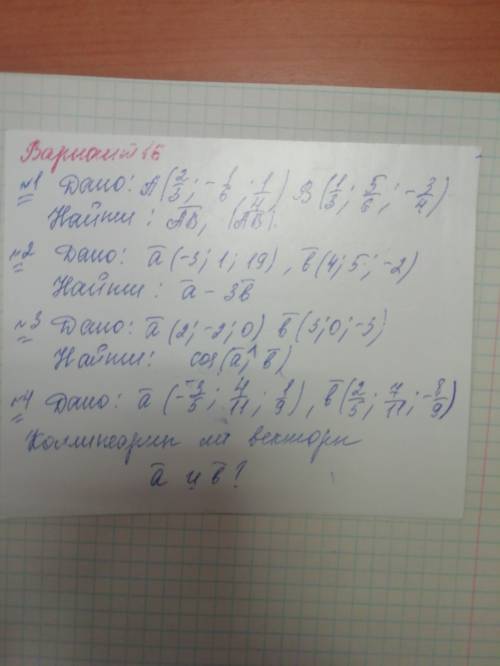 Вариант 16
№1 Дано: A(2/3; -1/6; 1/4) B(1/3; 5/6; -3/4)
Найти: AB, |AB|.
№2 Дано: a(-3; 1; 19), b(4; 5; -2)
Найти: a - 3b
№3 Дано: a(2; -2; 0) b(3; 0; -3)
Найти: cos(a^; b)
№4 Дано: a(-3/5; 4/11; 1/9), b(2/5; 7/11; -8/9)
Коллинеарны ли векторы
a и b?